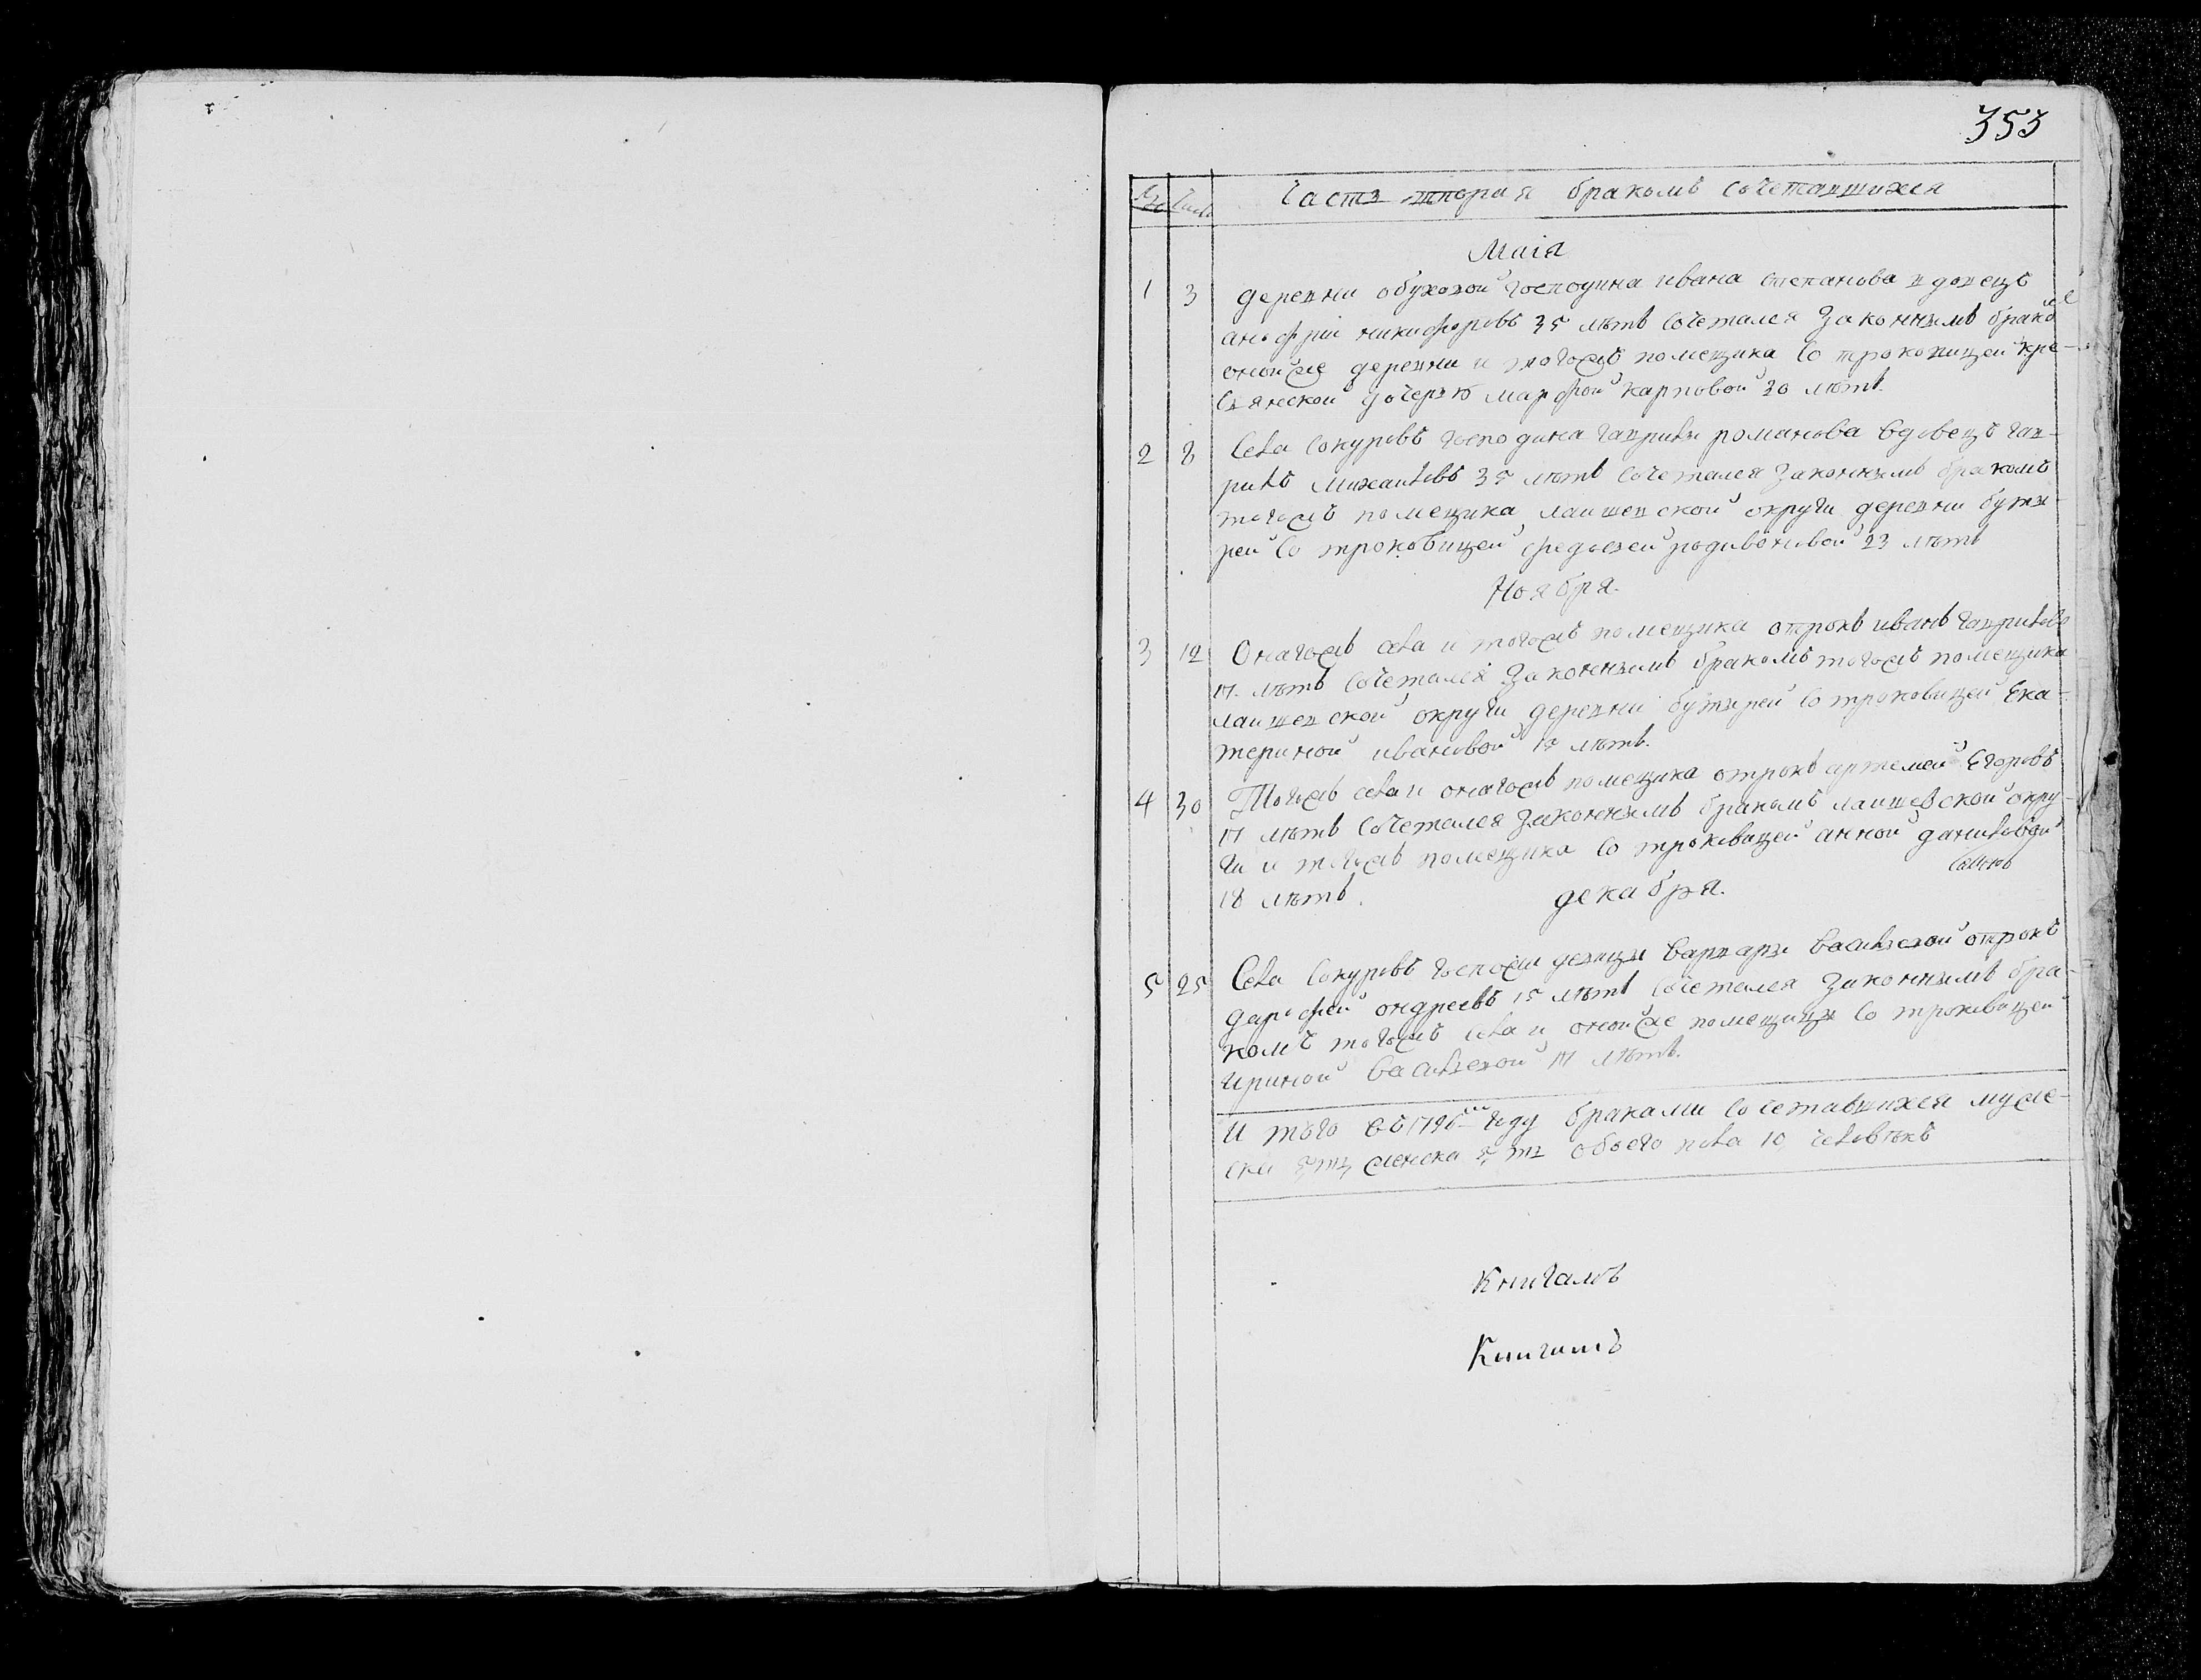 353
Часть вторая бракомъ сочетавшихся
Маія
1 3 деревни обуховой господина ивана степанова вдовецъ
анофрій никифоровъ 35 лѣтъ сочетался законнымъ брако
оной же деревни и тогожъ помещика со троковицей кре-
стянской дочерью марфой карповой 30 лѣтъ.
2 8 Села сокуровъ господина гаврилы романова вдовецъ гав-
рилъ михаиловъ 35 лѣтъ сочетался законнымъ бракомъ
тогожъ помещика лаишевской округи деревни буты-
рей со троковицей федосьей родивоновой 23 лѣтъ
Ноября.
3 12 Онагожъ села и тогожъ помещика отрокъ иванъ гавриловъ
17. лѣтъ сочетался законнымъ бракомъ тогожъ помещика
лаишевской округи деревни бутырей со троковицей Ека-
териной ивановой 15 лѣтъ.
4 30 Тогожъ села и онагожъ помещика отрокъ артемей Егоровъ
17 лѣтъ сочетался законнымъ бракомъ лаишевской окру-
ги и тогожъ помещика со троковицей анной даниловой
18 лѣтъ.
декабря.
5 25 Села сокуровъ госпожи девицы варвары васильевой отрокъ
дарофей ондреевъ 15 лѣтъ сочетался законнымъ бра-
комъ тогожъ села и оной же помещицы со троковицей
ириной васильевой 17 лѣтъ.
И того въ 1796 году браками сочетавшихся муже-
ска 5,ть женска 5,ть обоего пола 10 человѣкъ
Книгамъ
Книгамъ